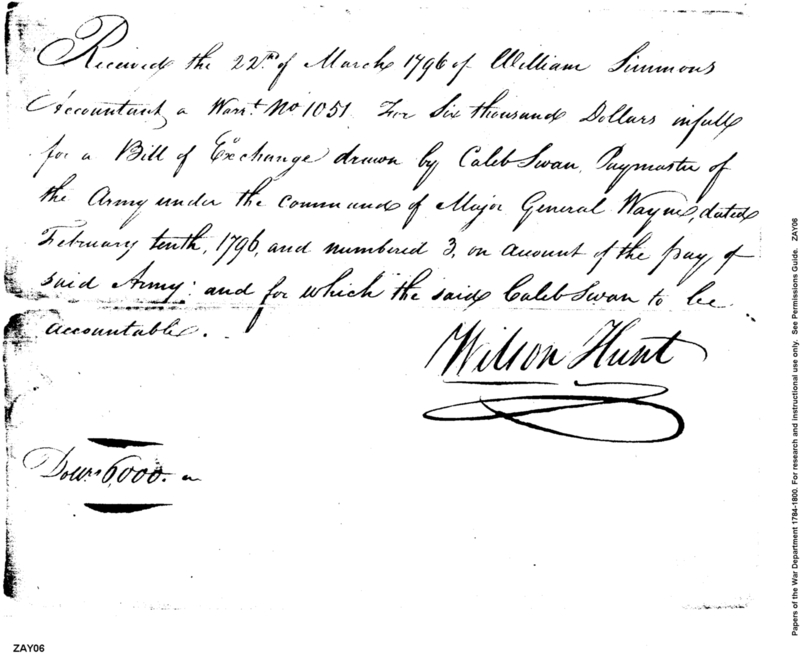 Received the 22nd. of March 1796 of William Simmons
Accountant, a Warrt. No 1051 For Six thousand Dollars in full
for a Bill of Exchange drawn by Caleb Swan, Paymaster of
the Army under the command of Major General Wayne, dated
February tenth, 1796, and numbered 3, on account of the pay of
said Army: and for which the said Caleb Swan to be
accountable.
Wilson Hunt
Dollrs 6,000.
ZAY06
Papers of the War Department 1784-1800. For research and instructional use only. See Permissions Guide. ZAY06